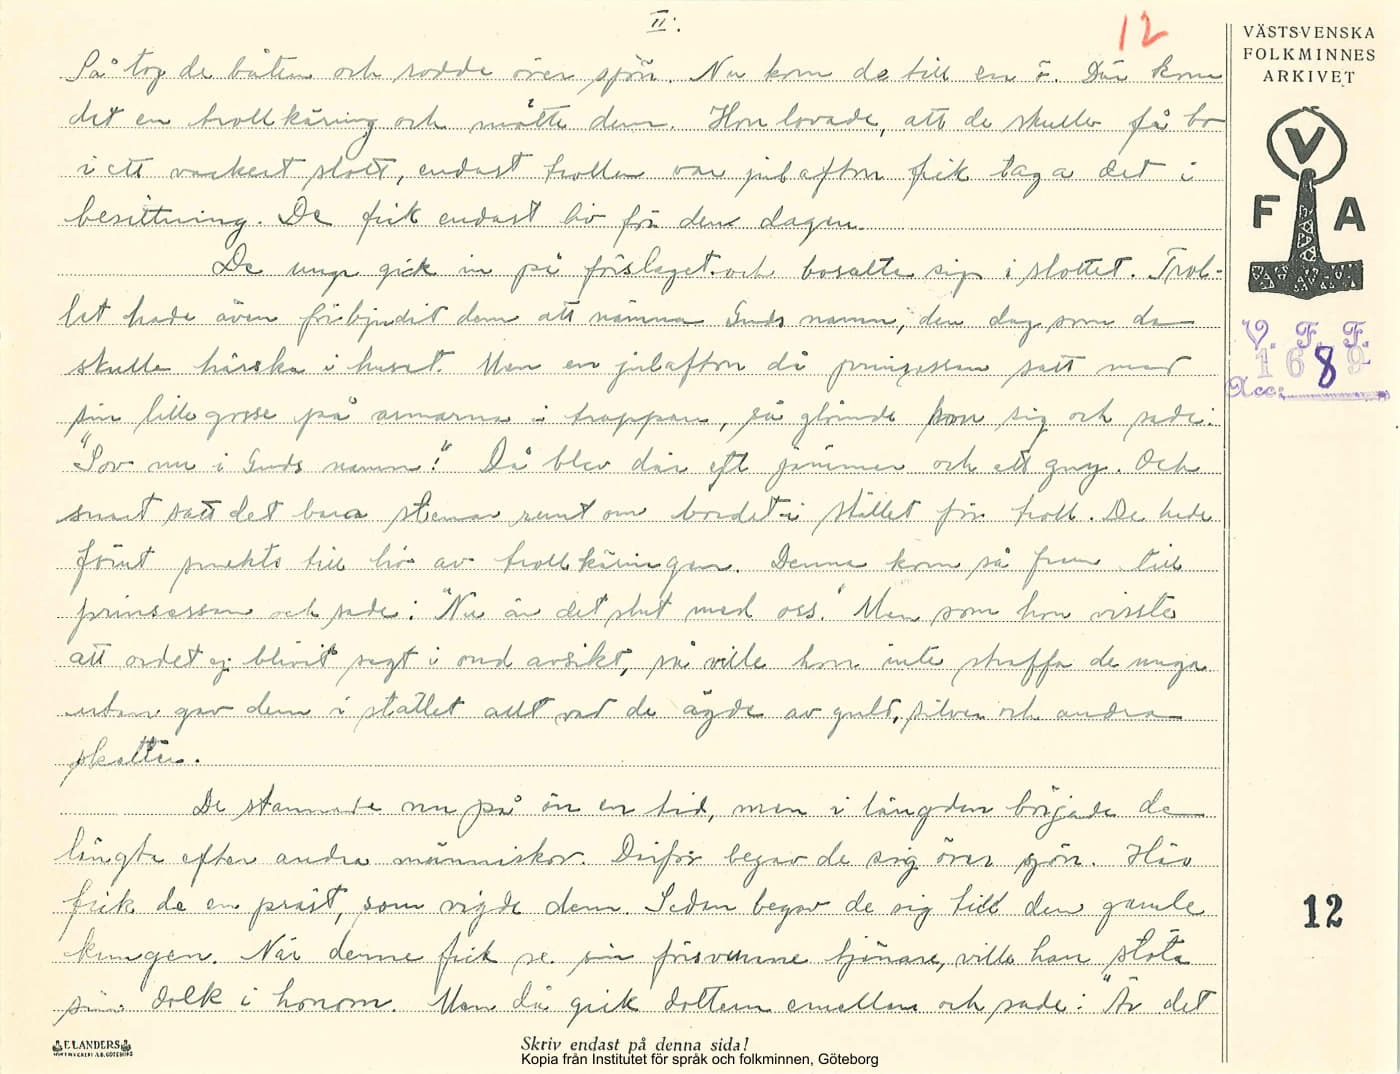 II.
12
Så tog de båten och rodde över sjön. Nu kom de till en ö. Där kom
det en trollkäring och mötte dem. Hon lovade, att de skulle få bo
i ett vackert slott, endast trollen var julafton fick taga det i
besittning. De fick endast bo för den dagen.
De unga gick in på förslaget och bosatte sig i slottet. Trol-
let hade även förbjudit dem att nämna Guds namn, den dag som de
skulle härska i huset. Men en julafton då prinsessan satt med
sin lille gosse på armarna i trappan, så glömde hon sig och sade:
"Sov nu i Guds namn!" Då blev där ett jämmer och ett gny. Och
snart satt det bara stenar runt om bordet i stället för troll. De hade
förut smekts till hö av trollkäringen. Denna kom så fram till
prinsessan och sade: "Nu är det slut med oss." Men som hon visste
att ordet ej blivit sagt i ond avsikt, så ville hon inte straffa de unga
utan gav dem i stället allt vad de ägde av guld, silver och andra
skatter.
De stannade nu på ön en tid, men i längden började de
längta efter andra människor. Därför begav de sig över sjön. Här
fick de en präst, som vigde dem. Sedan begav de sig till den gamle
kungen. När denne fick se sin försvunne tjänare, ville han stöta
sin dolk i honom. Men då gick dottern emellan och sade: "Är det
VÄSTSVENSKA
FOLKMINNES
ARKIVET
V
F A
V. F. F.
1689
Acc:
12
ELANDERS
GÖTEBORG
Skriv endast på denna sida!
Kopia från Institutet för språk och folkminnen, Göteborg